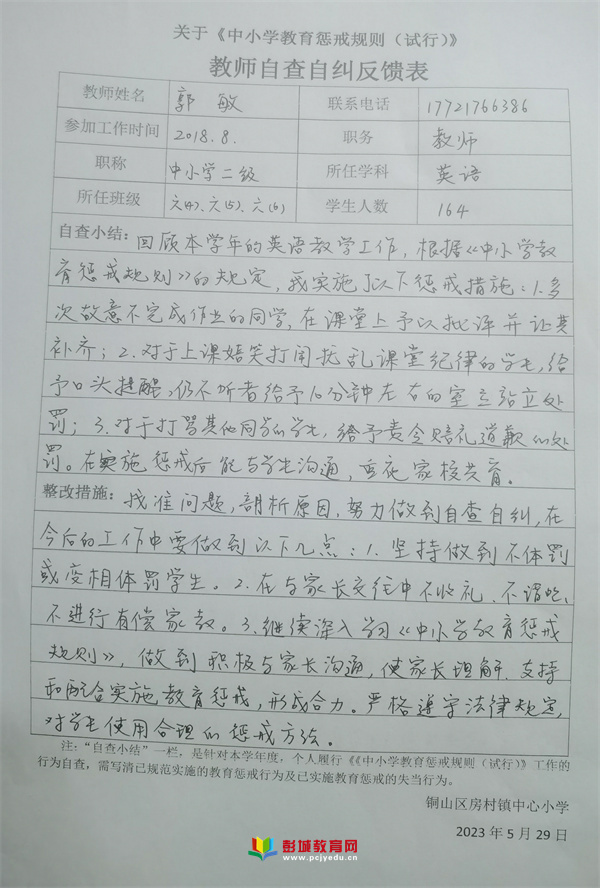 关于《中小学教育惩戒规则（试行）》
教师自查自纠反馈表
教师姓名 郭敏 联系电话 17721766386
参加工作时间 2018.8. 职务 教师
职称 中小学二级 所任学科 英语
所任班级 六(4)、六(5)、六(6) 学生人数 164
自查小结：回顾本学年的英语教学工作，根据《中小学教
育惩戒规则》的规定，我实施了以下惩戒措施：1.多
次故意不完成作业的同学，在课堂上予以批评并让其
补齐；2.对于上课嬉笑打闹扰乱课堂纪律的学生，给
予口头提醒，仍不听者给予10分钟左右的室立站立处
罚；3.对于打骂其他同学的学生，给予责令赔礼道歉的处
罚。在实施惩戒后能与学生沟通，重视家校共育。
整改措施：找准问题，剖析原因，努力做到自查自纠，在
今后的工作中要做到以下几点：1.坚持做到不体罚
或变相体罚学生。2.在与家长交往中不收礼、不谓吃、
不进行有偿家教。3.继续深入学习《中小学教育惩戒
规则》，做到积极与家长沟通，使家长理解、支持
和配合实施教育惩戒，形成合力。严格遵守法律规定，
对学生使用合理的惩戒方法。
注：“自查小结”一栏，是针对本学年度，个人履行《《中小学教育惩戒规则（试行）》工作的
行为自查，需写清已规范实施的教育惩戒行为及已实施教育惩戒的失当行为。
铜山区房村镇中心小学
2023年5月29日
彭城教育网
www.pcjyedu.cn